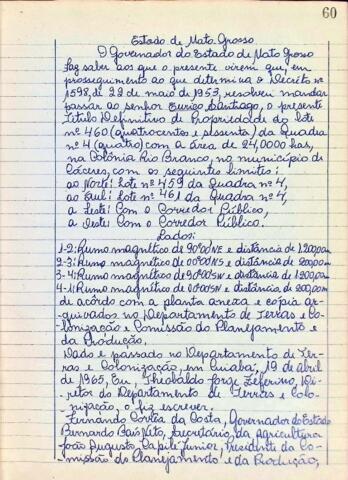 60
Estado de Mato Grosso
O Governador do Estado de Mato Grosso
Faz saber aos que o presente virem que, em
prosseguimento ao que determina o Decreto nº
1598, de 22 de maio de 1953, resolveu mandar
passar ao senhor Eurico Santiago, o presente
Titulo Definitivo de Propriedade do lote
nº 460 (quatrocentos e sessenta) da Quadra
nº 4 (quatro) com a área de 24,0000 has,
na Colônia Rio Branco, no município de
Cáceres, com os seguintes limites:
ao Norte: Lote nº 459 da Quadra nº 4,
ao Sul: Lote nº 461 da Quadra nº 4,
a Leste: Com o Corredor Público,
a Oeste: Com o Corredor Público.
Lados:
1-2: Rumo magnético de 90º00'NE e distância de 1.200,00m
2-3: Rumo magnético de 00º00'NS e distância de 200,00m
3-4: Rumo magnético de 90º00'SW e distância de 1.200,00m
4-1: Rumo magnético de 00º00'SN e distância de 200,00m
de acórdo com a planta anexa e cópia ar-
quivados no Departamento de Terras e Co-
lonização e Comissão do Planejamento e
da Produção.
Dado e passado no Departamento de Ter-
ras e Colonização, em Cuiabá, 19 de abril
de 1965, Eu, Theobaldo Jorge Zeferino, Di-
retor do Departamento de Terras e Colo-
nização, o fiz escrever.
Fernando Corrêa da Costa, Governador do Estado
Bernardo Bais Neto, Secretário, da Agricultura
João Augusto Capilé Junior, Presidente da Co-
missão do Planejamento e da Produção,